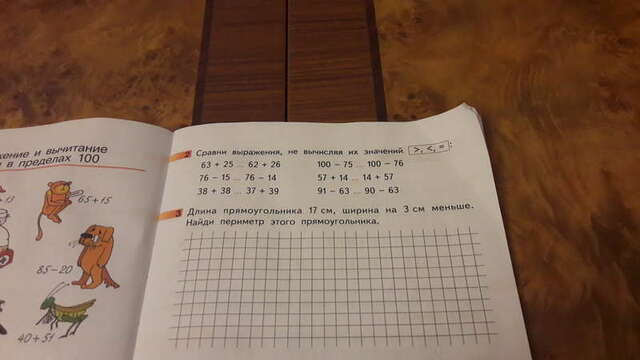 жение и вычитание
в пределах 100
65+15
85-20
40+51
2 Сравни выражения, не вычисляя их значений >, <, = :
63 + 25 ... 62 + 26 100 - 75 ... 100 - 76
76 - 15 ... 76 - 14 57 + 14 ... 14 + 57
38 + 38 ... 37 + 39 91 - 63 ... 90 - 63
3 Длина прямоугольника 17 см, ширина на 3 см меньше.
Найди периметр этого прямоугольника.